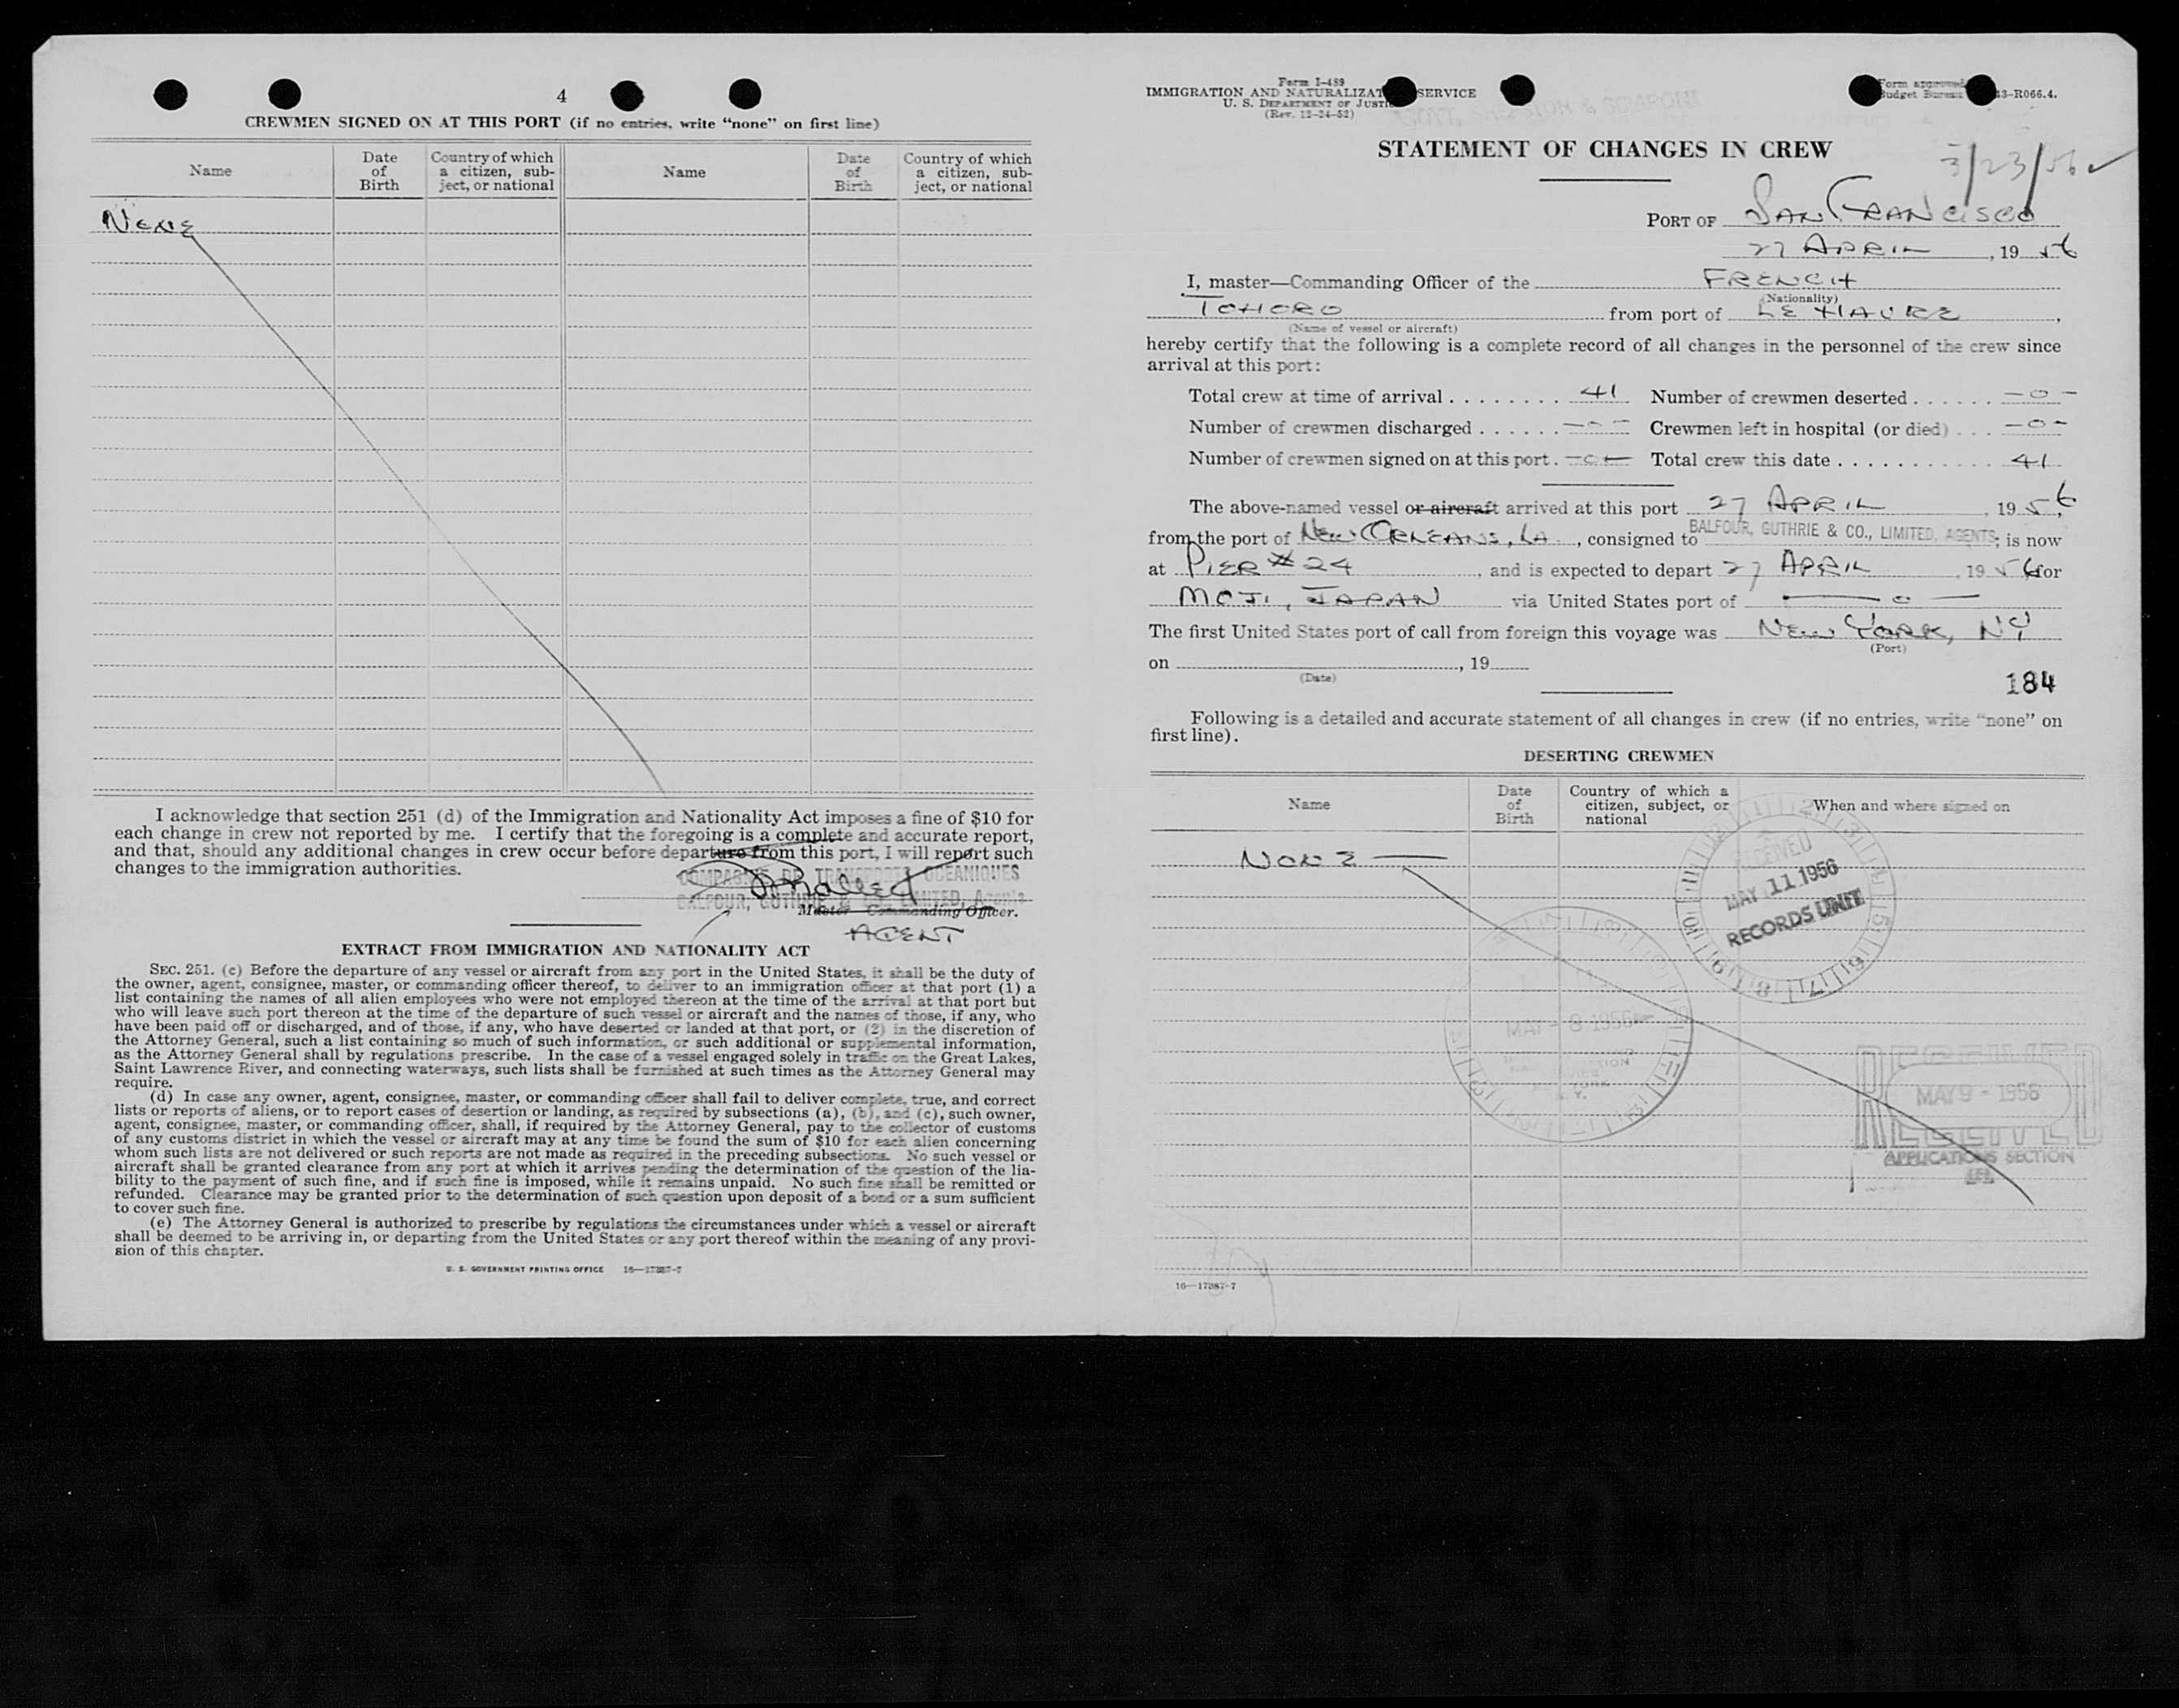 4
CREWMEN SIGNED ON AT THIS PORT (if no entries, write “none” on first line)
Name
Date of Birth
Country of which a citizen, subject, or national
Name
Date of Birth
Country of which a citizen, subject, or national
NONE
I acknowledge that section 251 (d) of the Immigration and Nationality Act imposes a fine of $10 for
each change in crew not reported by me. I certify that the foregoing is a complete and accurate report,
and that, should any additional changes in crew occur before departure from this port, I will report such
changes to the immigration authorities.
COMPAGNIE DE TRANSPORTS OCEANIQUES
BALFOUR, GUTHRIE & CO. LIMITED, Agents
Master Commanding Officer.
AGENT
EXTRACT FROM IMMIGRATION AND NATIONALITY ACT
SEC. 251. (c) Before the departure of any vessel or aircraft from any port in the United States, it shall be the duty of
the owner, agent, consignee, master, or commanding officer thereof, to deliver to an immigration officer at that port (1) a
list containing the names of all alien employees who were not employed thereon at the time of the arrival at that port but
who will leave such port thereon at the time of the departure of such vessel or aircraft and the names of those, if any, who
have been paid off or discharged, and of those, if any, who have deserted or landed at that port, or (2) in the discretion of
the Attorney General, such a list containing so much of such information, or such additional or supplemental information,
as the Attorney General shall by regulations prescribe. In the case of a vessel engaged solely in traffic on the Great Lakes,
Saint Lawrence River, and connecting waterways, such lists shall be furnished at such times as the Attorney General may
require.
(d) In case any owner, agent, consignee, master, or commanding officer shall fail to deliver complete, true, and correct
lists or reports of aliens, or to report cases of desertion or landing, as required by subsections (a), (b), and (c), such owner,
agent, consignee, master, or commanding officer, shall, if required by the Attorney General, pay to the collector of customs
of any customs district in which the vessel or aircraft may at any time be found the sum of $10 for each alien concerning
whom such lists are not delivered or such reports are not made as required in the preceding subsections. No such vessel or
aircraft shall be granted clearance from any port at which it arrives pending the determination of the question of the lia-
bility to the payment of such fine, and if such fine is imposed, while it remains unpaid. No such fine shall be remitted or
refunded. Clearance may be granted prior to the determination of such question upon deposit of a bond or a sum sufficient
to cover such fine.
(e) The Attorney General is authorized to prescribe by regulations the circumstances under which a vessel or aircraft
shall be deemed to be arriving in, or departing from the United States or any port thereof within the meaning of any provi-
sion of this chapter.
U. S. GOVERNMENT PRINTING OFFICE 16—17387-7
Form I-489
IMMIGRATION AND NATURALIZAT SERVICE
U. S. DEPARTMENT OF JUSTI
(Rev. 12-24-52)
Form approved
Budget Bureau 43-R066.4.
STATEMENT OF CHANGES IN CREW
3/23/56 ✓
PORT OF SAN FRANCISCO
27 APRIL, 19 56
I, master—Commanding Officer of the FRENCH
(Nationality)
TOHORO from port of LE HAVRE,
(Name of vessel or aircraft)
hereby certify that the following is a complete record of all changes in the personnel of the crew since
arrival at this port:
Total crew at time of arrival . . . . . . . . 41 Number of crewmen deserted . . . . . . —0—
Number of crewmen discharged . . . . . . —0— Crewmen left in hospital (or died) . . . —0—
Number of crewmen signed on at this port . —0— Total crew this date . . . . . . . . . . . 41
The above-named vessel or aircraft arrived at this port 27 APRIL, 19 56
from the port of NEW ORLEANS, LA., consigned to BALFOUR, GUTHRIE & CO., LIMITED, AGENTS; is now
at PIER #24, and is expected to depart 27 APRIL, 19 56 for
MOJI, JAPAN via United States port of — 0 —
The first United States port of call from foreign this voyage was NEW YORK, NY
(Port)
on , 19
(Date)
184
Following is a detailed and accurate statement of all changes in crew (if no entries, write “none” on
first line).
DESERTING CREWMEN
Name
Date of Birth
Country of which a citizen, subject, or national
When and where signed on
NONE —
RECEIVED
MAY 11 1956
RECORDS UNIT
MAY - 8 1956
RECEIVED
MAY 9 - 1956
APPLICATIONS SECTION
16—17387-7